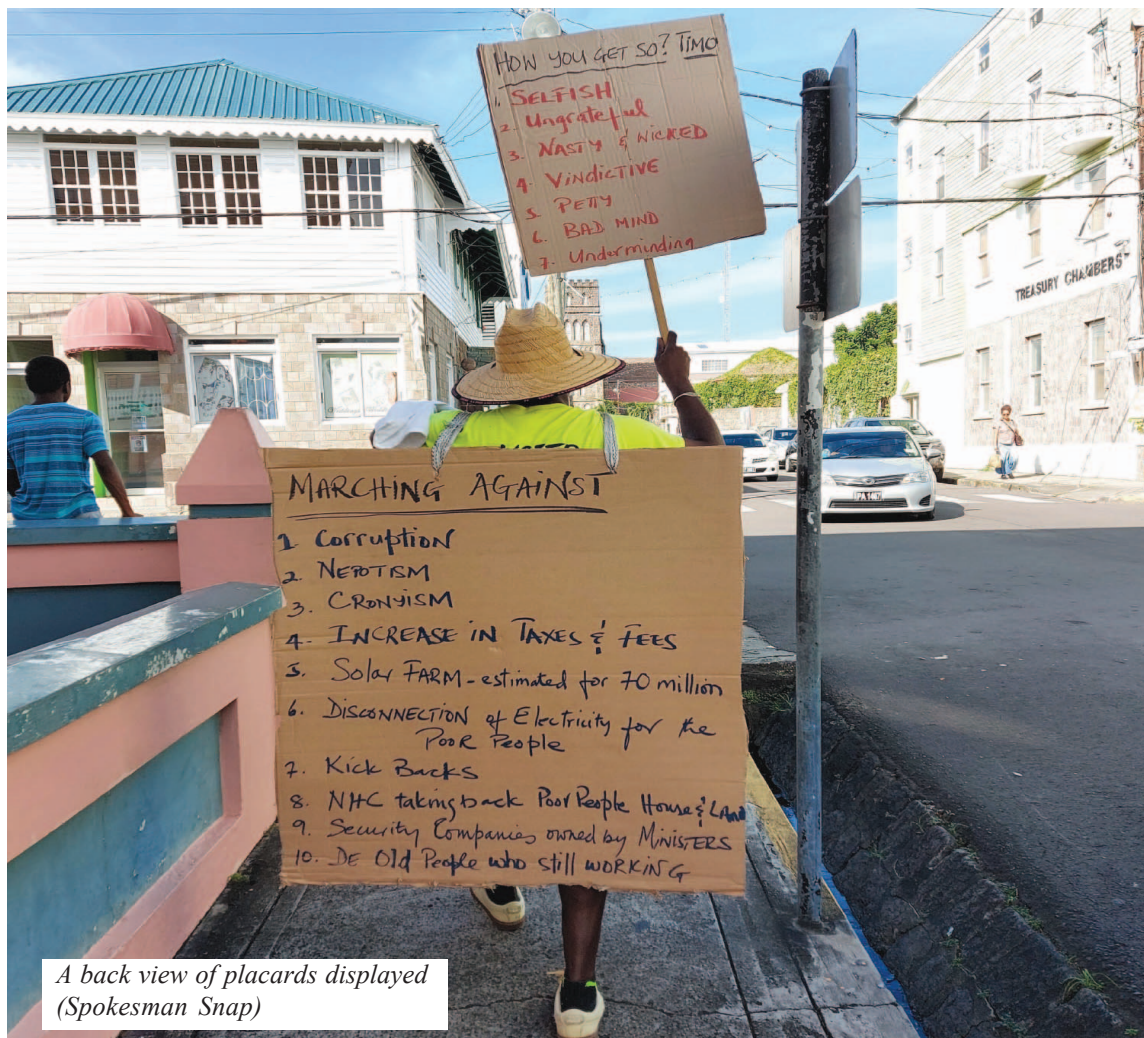 HOW YOU GET SO? TIMO
1. SELFISH
2. Ungrateful
3. NASTY & WICKED
4. VINDICTIVE
5. PETTY
6. BAD MIND
7. Underminding
TREASURY CHAMBERS
MARCHING AGAINST
1 Corruption
2. NEPOTISM
3. CRONYISM
4. INCREASE IN TAXES & FEES
5. Solar FARM - estimated for 70 million
6. DISCONNECTION of Electricity for the
POOR PEOPLE
7. Kick Backs
8. NHC taking back Poor People House & LAND
9. Security Companies owned by MINISTERS
10. DE Old People who still WORKING
A back view of placards displayed
(Spokesman Snap)